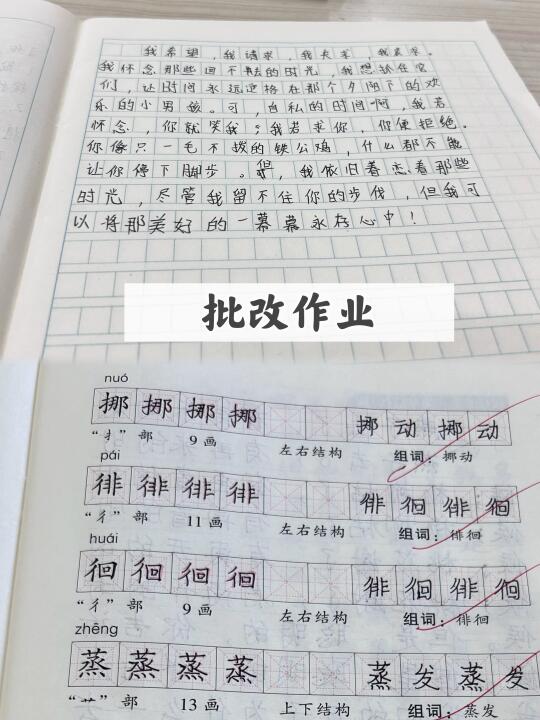 我希望，我请求，我哀求。
我怀念那些回不去的时光，我想抓住它
们，让时间永远定格在那个夕阳下的欢
乐的小男孩。可，自私的时间啊，我若
怀念，你就笑我；我若求你，你便拒绝。
你像只一毛不拔的铁公鸡，什么都不能
让你停下脚步。但，我依旧眷恋着那些
时光，尽管我留不住你的步伐，但我可
以将那美好的一幕幕永存心中！
批改作业
nuó
挪 挪 挪 挪 挪 动 挪 动
“扌”部 9 画 左右结构 组词：挪动
pái
徘 徘 徘 徘 徘 徊 徘 徊
“彳”部 11 画 左右结构 组词：徘徊
huái
徊 徊 徊 徊 徘 徊 徘 徊
“彳”部 9 画 左右结构 组词：徘徊
zhēng
蒸 蒸 蒸 蒸 蒸 发 蒸 发
“艹”部 13 画 上下结构 组词：蒸发